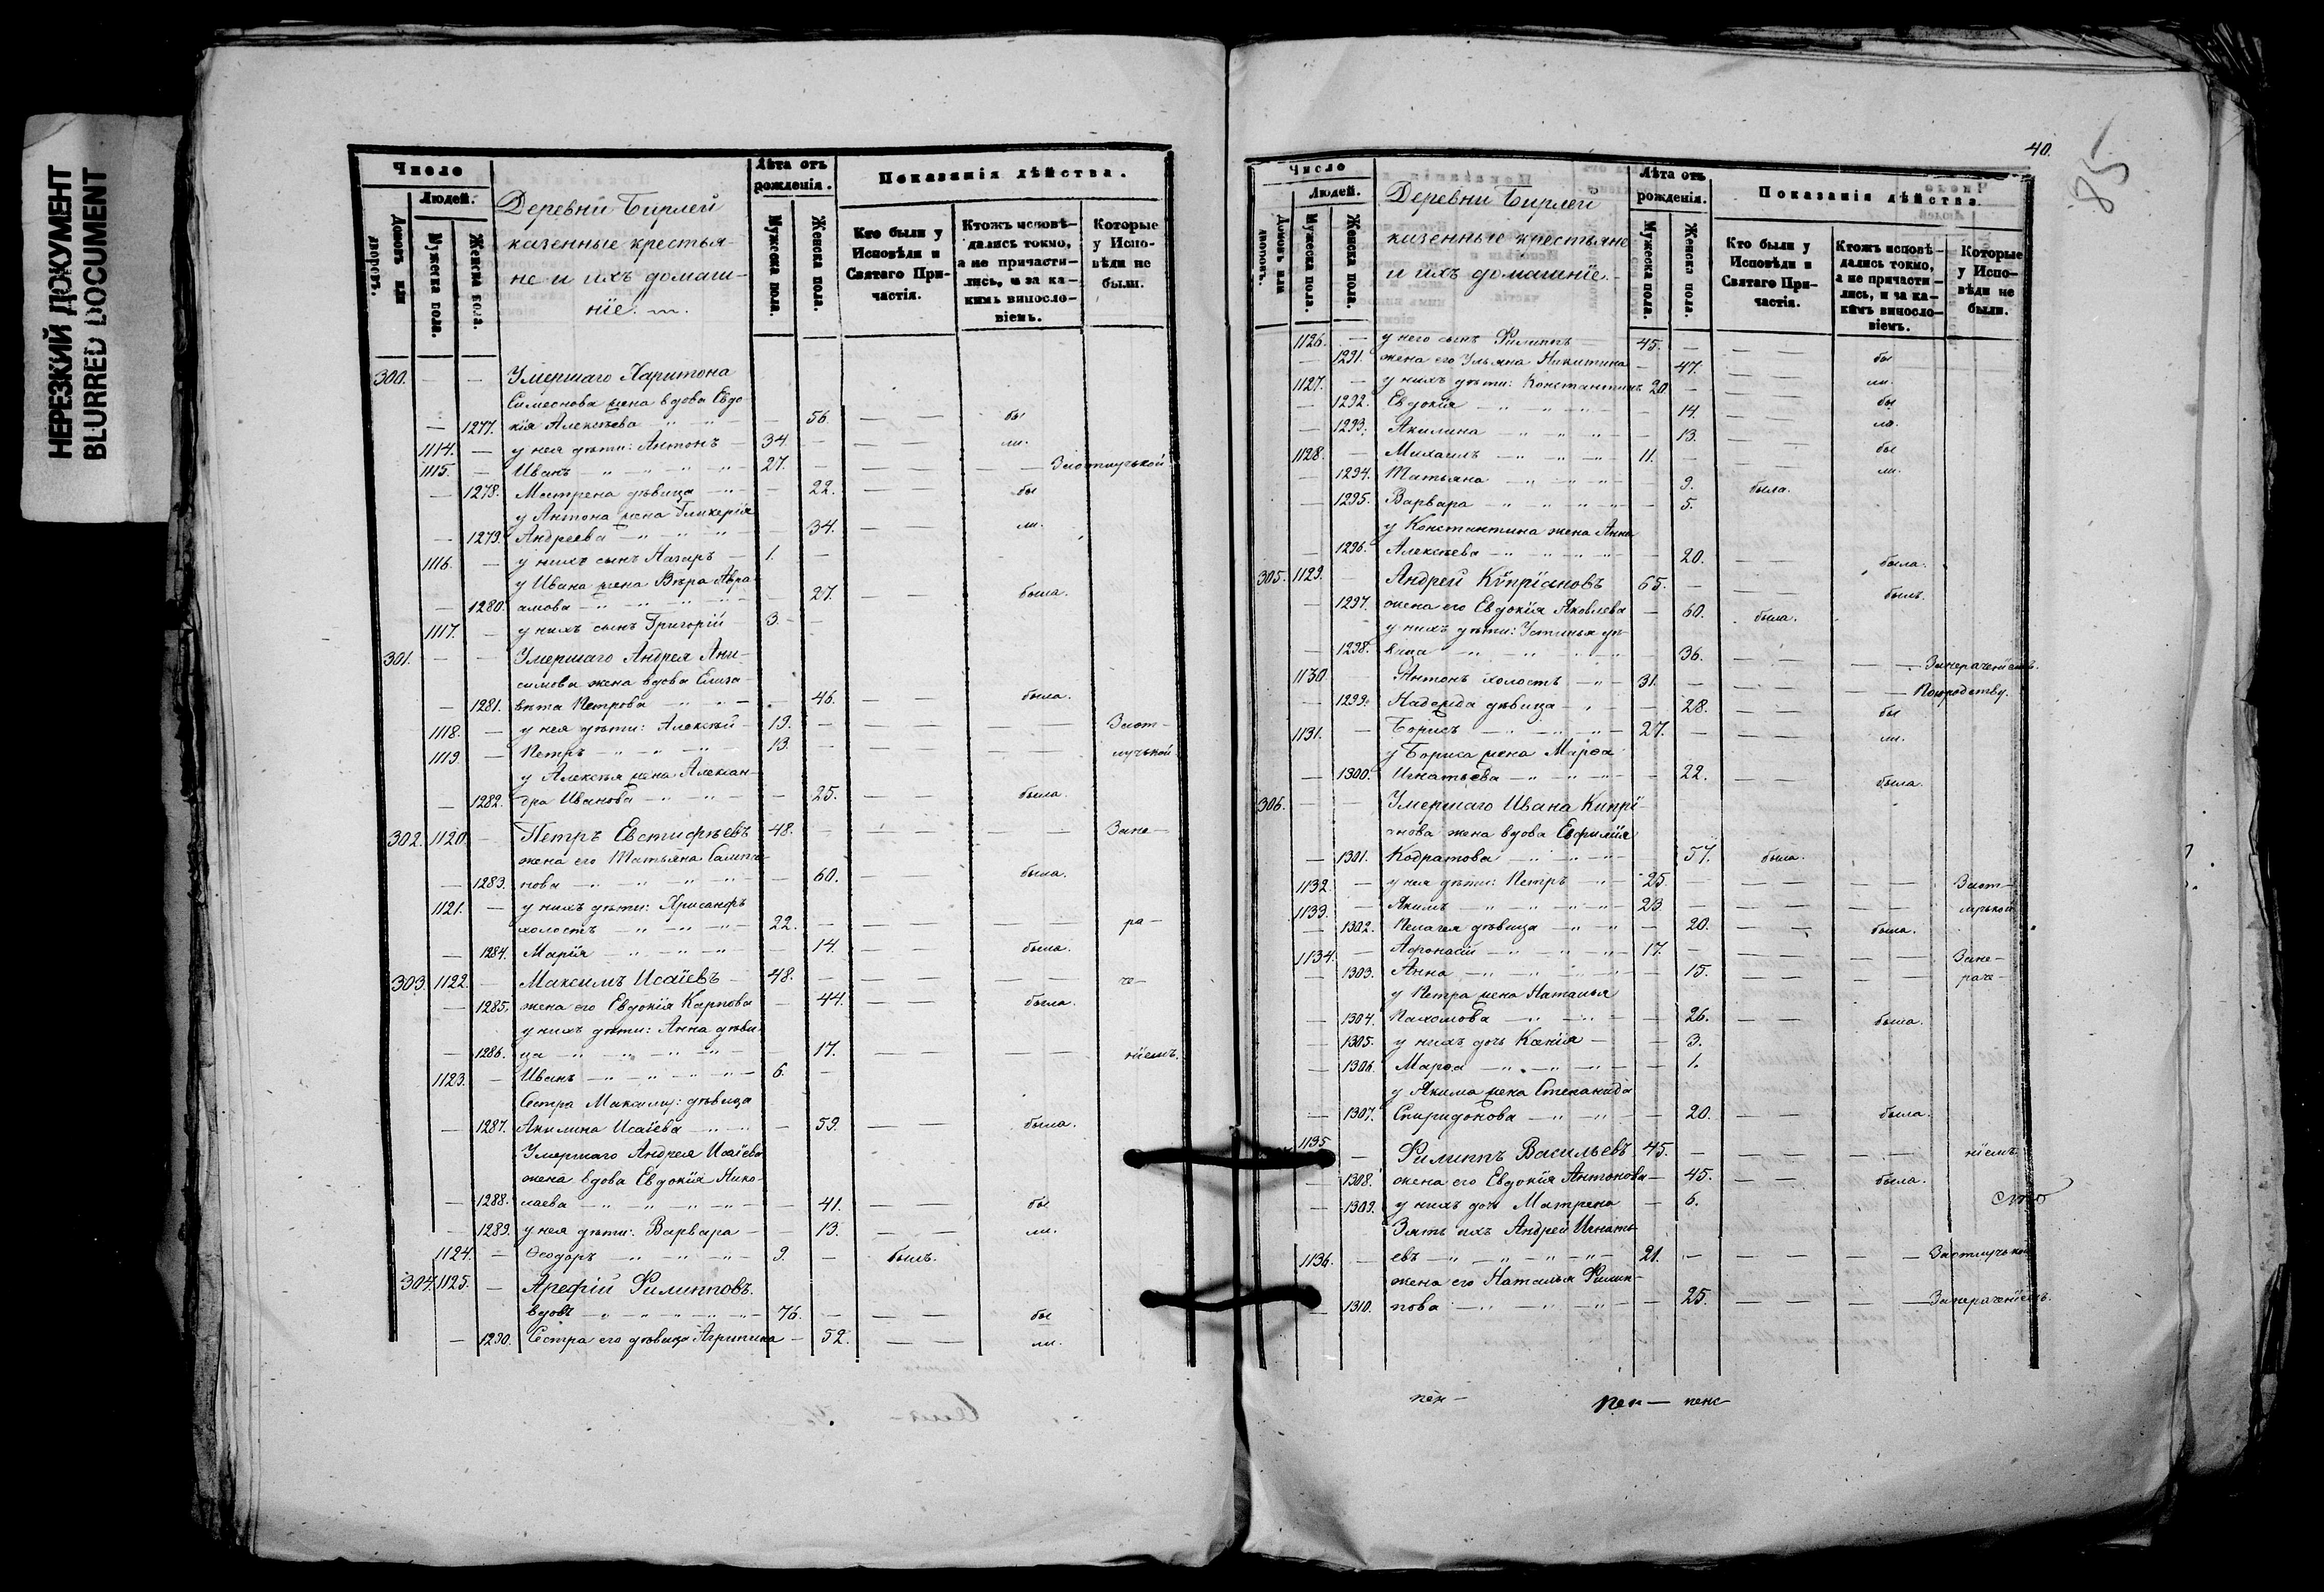 НЕРЕЗКИЙ ДОКУМЕНТ
BLURRED DOCUMENT
Число
Людей.
Домовъ или дворовъ.
Мужеска пола.
Женска пола.
Деревни Бирлей
казенные крестья-
не и ихъ домаш-
нїе.
Лѣта отъ рожденія.
Мужеска пола.
Женска пола.
Показанія дѣйства.
Кто были у Исповѣди и Святаго Причастія.
Ктожъ исповѣдались токмо, а не причастились, и за какимъ винословіемъ.
Которые у Исповѣди не были.
300. — — Умершаго Харитона
Симеонова жена вдова Евдо-
— 1277. кїя Алексѣева — 56. — — бы
1114. — у нея дѣти: Антонъ — 34. — — — ли.
1115. — Иванъ 27. — — Заотлучькой
— 1278. Матрена дѣвица — 22. — — бы
у Антона жена Гликерїя
— 1279. Андреева — 34. — — ли.
1116. — у нихъ сынъ Назаръ — 1. —
у Ивана жена Вѣра Авра-
— 1280. амова — 27. — — была.
1117. — у нихъ сынъ Григорїй 3. —
301. — — Умершаго Андрея Ани-
симова жена вдова Елиза-
— 1281. вѣта Петрова — 46. — — была.
1118. — у нея дѣти: Алексѣй — 19. — — — — Заот-
1119. — Петръ 13. — — — — лучькой
у Алексѣя жена Алексан-
— 1282. дра Иванова — 25. — — была.
302. 1120. — Петръ Евстифѣевъ 48. — — — — Зане-
жена его Татьяна
— 1283. нова — 60. — — была.
1121. — у нихъ дѣти: Хрисанфъ
холостъ 22. — — — — ра-
— 1284. Марїя 14. — — была.
303. 1122. — Максимъ Исаїевъ — 48. — — — — че-
— 1285. жена его Евдокїя Карпова — 44. — — была.
у нихъ дѣти: Анна дѣви-
— 1286. ца 17. — — — — нїемъ.
1123. — Иванъ 6. —
Сестра Максиму: дѣвица
— 1287. Акилина Исаїева — 59. — — была.
Умершаго Андрея Исаїева
жена вдова Евдокїя Нико-
— 1288. лаева — 41. — — бы
— 1289. у нея дѣти: Варвара — 13. — — ли.
1124. — Ѳеодоръ 9. — былъ.
304. 1125. — Арефїй Филипповъ.
вдовъ 76. — — — бы
— 1290. Сестра его дѣвица Агрипина — 52. — — ли.
40.
85
Число
Людей.
Домовъ или дворовъ.
Мужеска пола.
Женска пола.
Деревни Бирлей
казенные крестьяне
и ихъ домашнїе.
Лѣта отъ рожденія.
Мужеска пола.
Женска пола.
Показанія дѣйства.
Кто были у Исповѣди и Святаго Причастія.
Ктожъ исповѣдались токмо, а не причастились, и за какимъ винословіемъ.
Которые у Исповѣди не были.
1126. — у него сынъ Филиппъ — 45. — —
— 1291. жена его Ульяна Никитина — 47. — — бы
1127. — у нихъ дѣти: Константинъ 20. — — ли.
— 1292. Евдокїя — 14. — — бы
— 1293. Акилина — 13. — — ла.
1128. — Михаилъ 11. — — — бы
— 1294. Татьяна — 9. — ли.
— 1295. Варвара — 5. была.
у Константина жена Анна
— 1296. Алексѣева — 20. — — была.
305. 1129. — Андрей Купрїановъ 65. — былъ.
— 1297. жена его Евдокїя Яковлева — 60. была.
у нихъ дѣти: Устинья дѣ-
— 1298. вица 36. — — — — Занераченїемъ.
1130. — Антонъ холостъ 31. — — — — Поюродству.
— 1299. Надежда дѣвица — 28. — — бы
1131. — Борисъ 27. — — — ли.
у Бориса жена Марѳа
— 1300. Игнатьева — 22. — — была.
306. — — Умершаго Ивана Кипрї-
анова жена вдова Евфимїя
— 1301. Кодратова — 57. была.
1132. — у нея дѣти: Петръ 25. — — — — Заот-
1133. — Якимъ 23. — — — — лучькой
— 1302. Пелагея дѣвица — 20. — — была.
1134. — Афонасїй 17. — — — — Зане-
— 1303. Анна — 15. — — — — раче-
у Петра жена Наталья
— 1304. Пахомова — 26. — — была.
— 1305. у нихъ дочь Ксенїя — — 3.
— 1306. Марѳа — 1.
у Якима жена Степанида
— 1307. Спиридонова — 20. — — была.
1135. — Филиппъ Васильевъ 45. — — — — нїемъ.
— 1308. жена его Евдокїя Антонова — 45. — — была.
— 1309. у нихъ дочь Матрена — 6.
Зять ихъ Андрей Игнать-
1136. — евъ 21. — — — — Заотлучькой
жена его Наталья Филип-
— 1310. пова — 25. — — — — Занераченїемъ.
пен — пен — пенс